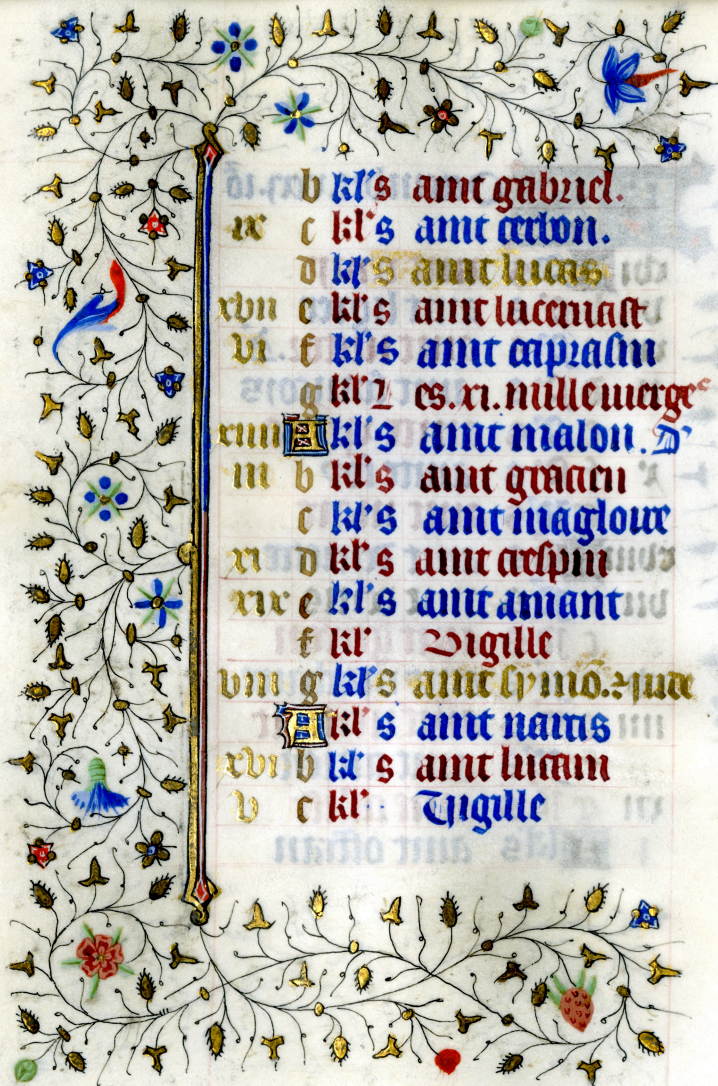 b kl's aint gabriel.
ix c kl's aint cerbon.
d kl's aint lucas
xvii e kl's aint lucernast
vi f kl's aint caprasin
g kl' L es.xi.mille vierge
xiiii A kl's aint malon. D'
iii b kl's aint gracien
c kl's aint magloire
xi d kl's aint crespin
xix e kl's aint amant
f kl' Vigille
viii g kl's aint symō. z jude
A kl's aint narcis
xvi b kl's aint lucain
v c kl' Vigille